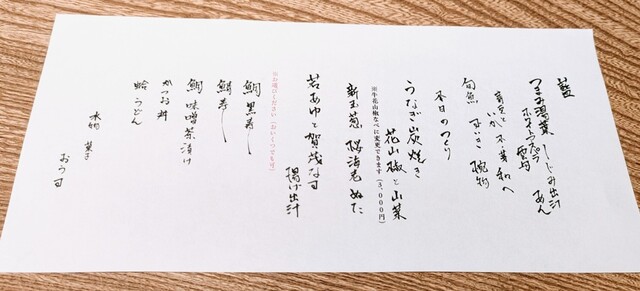 藍
つまみ湯葉 しじみ出汁
ホワイトアスパラ 雲丹 あん
いか 木の芽和へ
旬魚 椀物
本日のつくり
うなぎ炭焼き
花山椒と山菜
※牛花山椒なべに変更できます(3,000円)
新玉葱 桜海老 ぬた
若あゆと賀茂なす
揚げ出汁
※お選びください(おいくつでも可)
鯛 黒寿し
鯖寿し
鯛 味噌茶漬け
かつお丼
蛤 うどん
水物 菓子
おう司